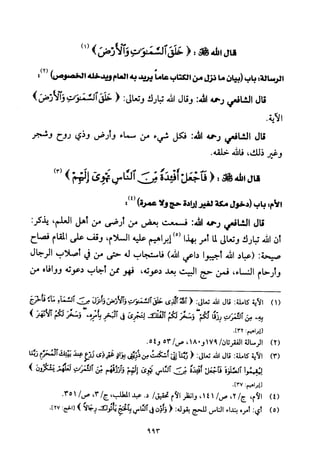 قال الله ﷻ : ﴿ خَلَقَ ٱلسَّمَٰوَٰتِ وَٱلْأَرْضَ ﴾ (١)
الرسالة: باب (بيان ما نزل من الكتاب عاماً يريد به العام ويدخله الخصوص) (٢):
قال الشافعي رحمه الله: وقال الله تبارك وتعالى: ﴿ خَلَقَ ٱلسَّمَٰوَٰتِ وَٱلْأَرْضَ ﴾
الآية.
قال الشافعي رحمه الله: فكل شيء من سماء وأرض وذي روح وشجر
وغير ذلك، فالله خلقه.
قال الله ﷻ : ﴿ فَٱجْعَلْ أَفْـِٔدَةً مِّنَ ٱلنَّاسِ تَهْوِىٓ إِلَيْهِمْ ﴾ (٣)
الأم: باب (دخول مكة لغير إرادة حج ولا عمرة) (٤):
قال الشافعي رحمه الله: فسمعت بعض من أرضى من أهل العلم، يذكر:
أن الله تبارك وتعالى لما أمر بهذا (٥) إبراهيم عليه السلام، وقف على المقام فصاح
صيحة: (عباد الله أجيبوا داعي الله) فاستجاب له حتى من في أصلاب الرجال
وأرحام النساء، فمن حج البيت بعد دعوته، فهو ممن أجاب دعوته ووافاه من
(١) الآية كاملة: قال الله تعالى: ﴿ ٱللَّهُ ٱلَّذِى خَلَقَ ٱلسَّمَٰوَٰتِ وَٱلْأَرْضَ وَأَنزَلَ مِنَ ٱلسَّمَآءِ مَآءً فَأَخْرَجَ
بِهِۦ مِنَ ٱلثَّمَرَٰتِ رِزْقًا لَّكُمْ وَسَخَّرَ لَكُمُ ٱلْفُلْكَ لِتَجْرِىَ فِى ٱلْبَحْرِ بِأَمْرِهِۦ وَسَخَّرَ لَكُمُ ٱلْأَنْهَٰرَ ﴾
[إبراهيم: ٣٢].
(٢) الرسالة الفقرتان/ ١٧٩ و١٨٠، ص/ ٥٣ و٥٤.
(٣) الآية كاملة: قال الله تعالى: ﴿ رَّبَّنَآ إِنِّىٓ أَسْكَنتُ مِن ذُرِّيَّتِى بِوَادٍ غَيْرِ ذِى زَرْعٍ عِندَ بَيْتِكَ ٱلْمُحَرَّمِ رَبَّنَا
لِيُقِيمُوا۟ ٱلصَّلَوٰةَ فَٱجْعَلْ أَفْـِٔدَةً مِّنَ ٱلنَّاسِ تَهْوِىٓ إِلَيْهِمْ وَٱرْزُقْهُم مِّنَ ٱلثَّمَرَٰتِ لَعَلَّهُمْ يَشْكُرُونَ ﴾
[إبراهيم: ٣٧].
(٤) الأم، ج/ ٢، ص/ ١٤١، وانظر الأم تحقيق/ د. عبد المطلب، ج/ ٣، ص/ ٣٥١.
(٥) أي: أمره بنداء الناس للحج بقوله: ﴿ وَأَذِّن فِى ٱلنَّاسِ بِٱلْحَجِّ يَأْتُوكَ رِجَالًا ﴾ [الحج: ٢٧].
٩٩٣